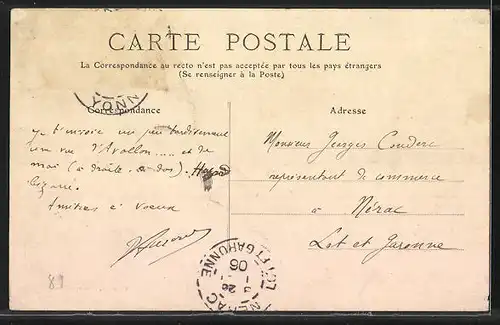 CARTE POSTALE
La Correspondance au recto n'est pas acceptée par tous les pays étrangers
(Se renseigner à la Poste)
YONN
Correspondance
Adresse
J'envoie un peu tardivement
une vue d'Avallon.... et de
moi (à droite, de dos). Hasard
bizarre.
Amitiés & voeux
Monsieur Georges Couderc
représentant de commerce
à Nérac
Lot et Garonne
NERAC
26
06
LOT ET GARONNE